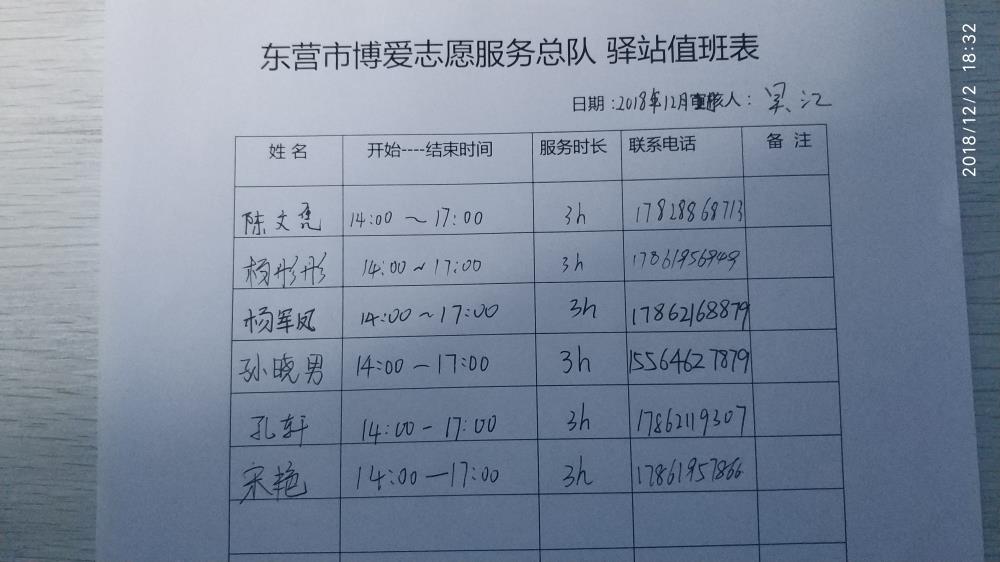 东营市博爱志愿服务总队 驿站值班表
日期：2018年12月 审核人：吴江
姓名 开始----结束时间 服务时长 联系电话 备 注
陈文亮 14:00 ～ 17:00 3h 17828868713
杨彤彤 14:00 ~ 17:00 3h 17861956949
杨军凤 14:00 ~ 17:00 3h 17862168879
孙晓男 14:00 — 17:00 3h 15564627879
孔轩 14:00 - 17:00 3h 17862119307
宋艳 14:00 — 17:00 3h 17861957866
2018/12/2 18:32